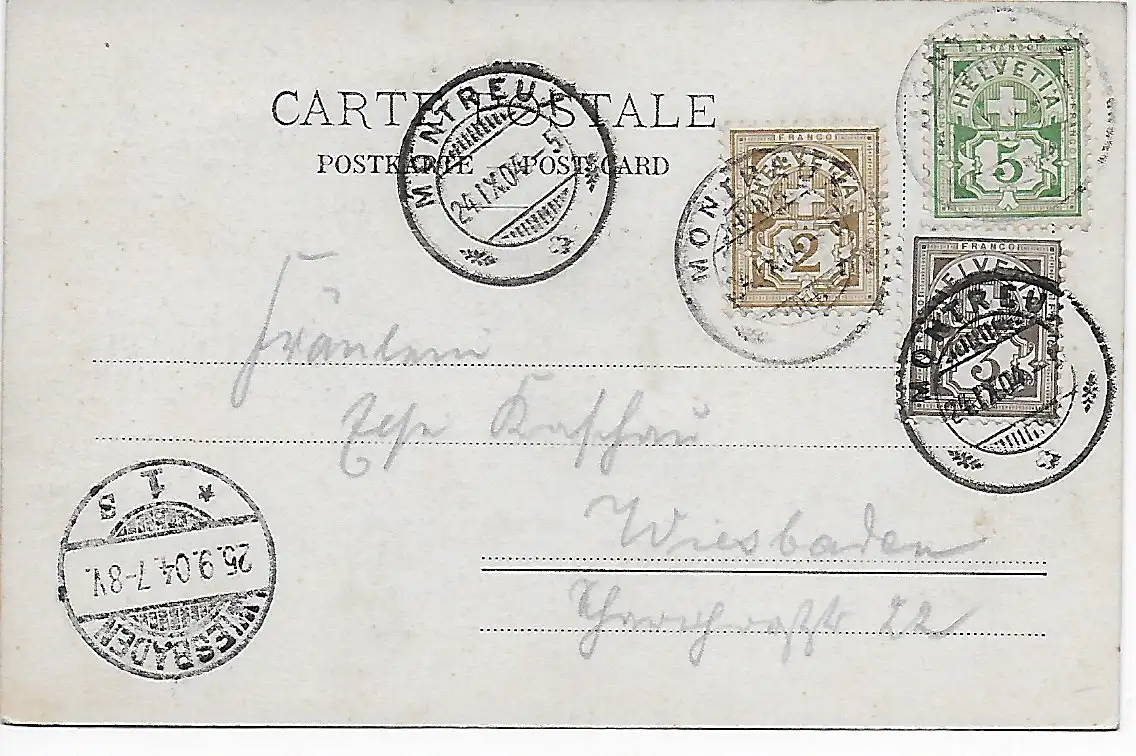 CARTE POSTALE
POSTKARTE POST CARD
MONTREUX
24.IX.04.-5
FRANCO
HELVETIA
5
FRANCO
HELVETIA
2
MONTREUX
FRANCO
HELVETIA
3
MONTREUX
24.IX.04.-
Fräulein
Kaschau
Wiesbaden
22
WIESBADEN
25.9.04.7-8V.
* 1 s